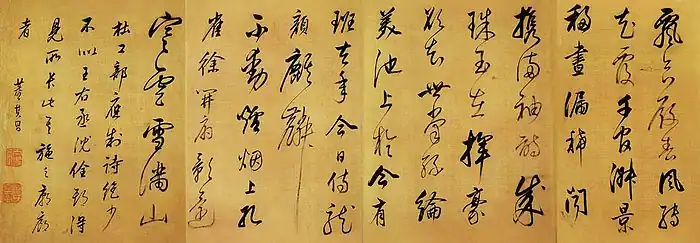 飄合殿春風轉
花覆千官淑景
移晝漏稀聞
攜滿袖詩成
珠玉在揮毫
欲知世掌絲綸
美池上於今有
班去年今日侍龍
顏麒麟
不動爐烟上孔
雀徐開扇影還
寒雲雪滿山
杜工部應制詩絕少
不似王右丞沈佺期得
見所長此其施之廊廟
者
董其昌